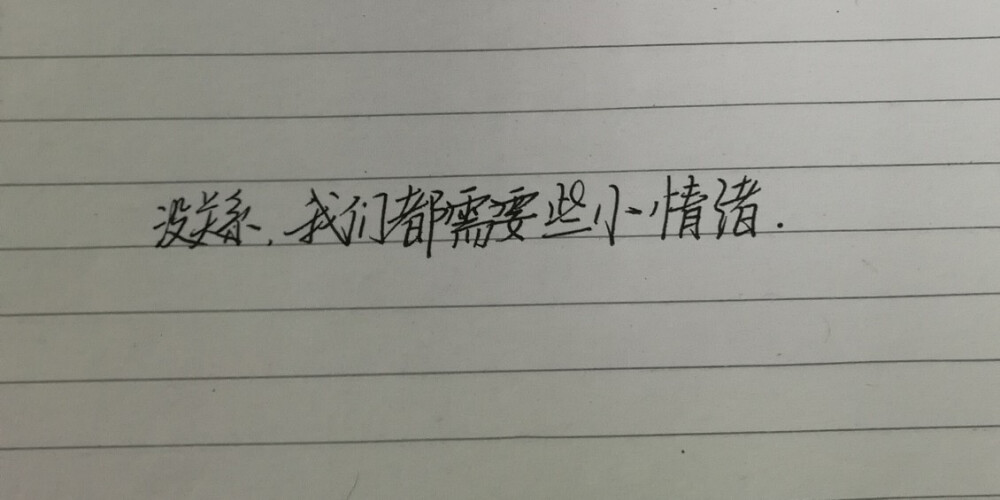 没关系,我们都需要些小情绪.